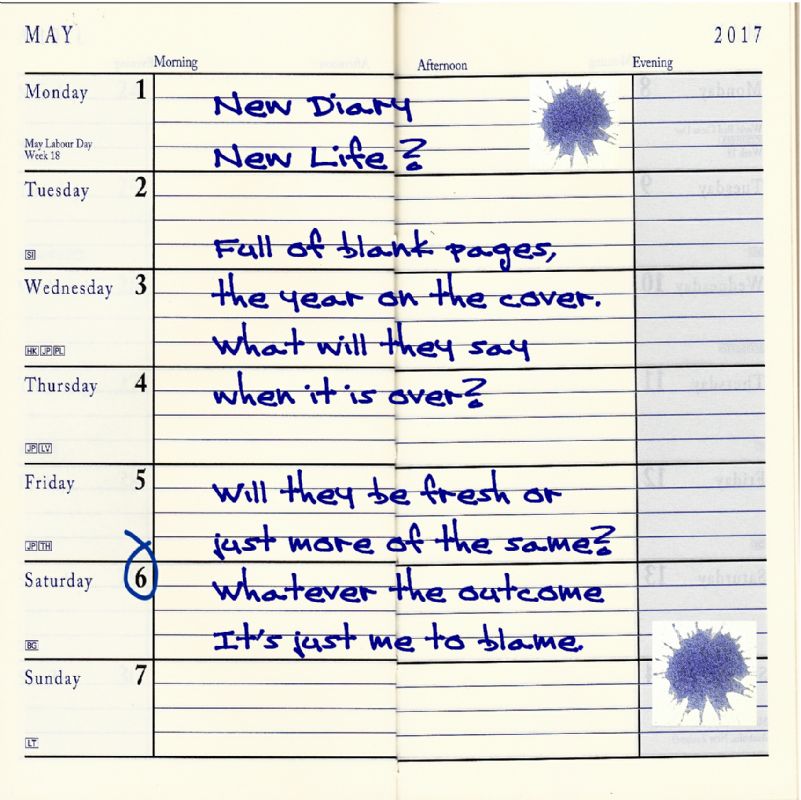 MAY 2017
Morning Afternoon Evening
Monday 1 New Diary
May Labour Day
Week 18 New Life?
Tuesday 2
SI Full of blank pages,
Wednesday 3 the year on the cover.
HK JP PL What will they say
Thursday 4 when it is over?
JP LV
Friday 5 Will they be fresh or
JP TH just more of the same?
Saturday 6 Whatever the outcome
BG It's just me to blame.
Sunday 7
LT